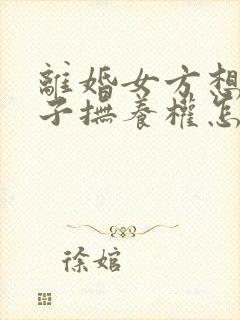 離婚女方想
子撫養權怎
徐婠